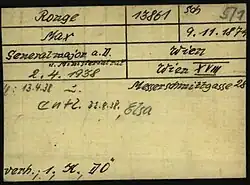 Ronge 13861 Sch 5/1
Max 9. 11. 1874
Generalmajor a.D. Wien
u. Ministerialrat
2. 4. 1938 Wien XVIII
13.4.38 Messerschmittgasse 28
entl. Elsa
verh., 1, K, DÖ